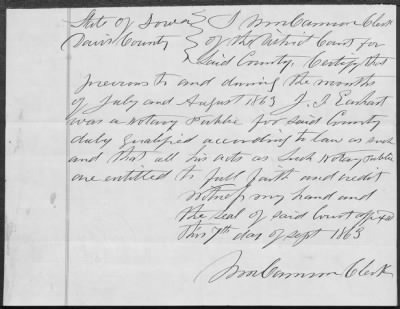 State of Iowa } I Wm Cannon Clerk
Davis County } of the District Court for
Said County, Certify that
previous to and during the months
of July and August 1863 J. J. Earhart
was a Notary Public for said County
duly qualified according to law as such
and that all his acts as such Notary Public
are entitled to full faith and credit
Witness my hand and
the seal of said Court affixed
this 7th day of Sept 1863
Wm Cannon Clerk